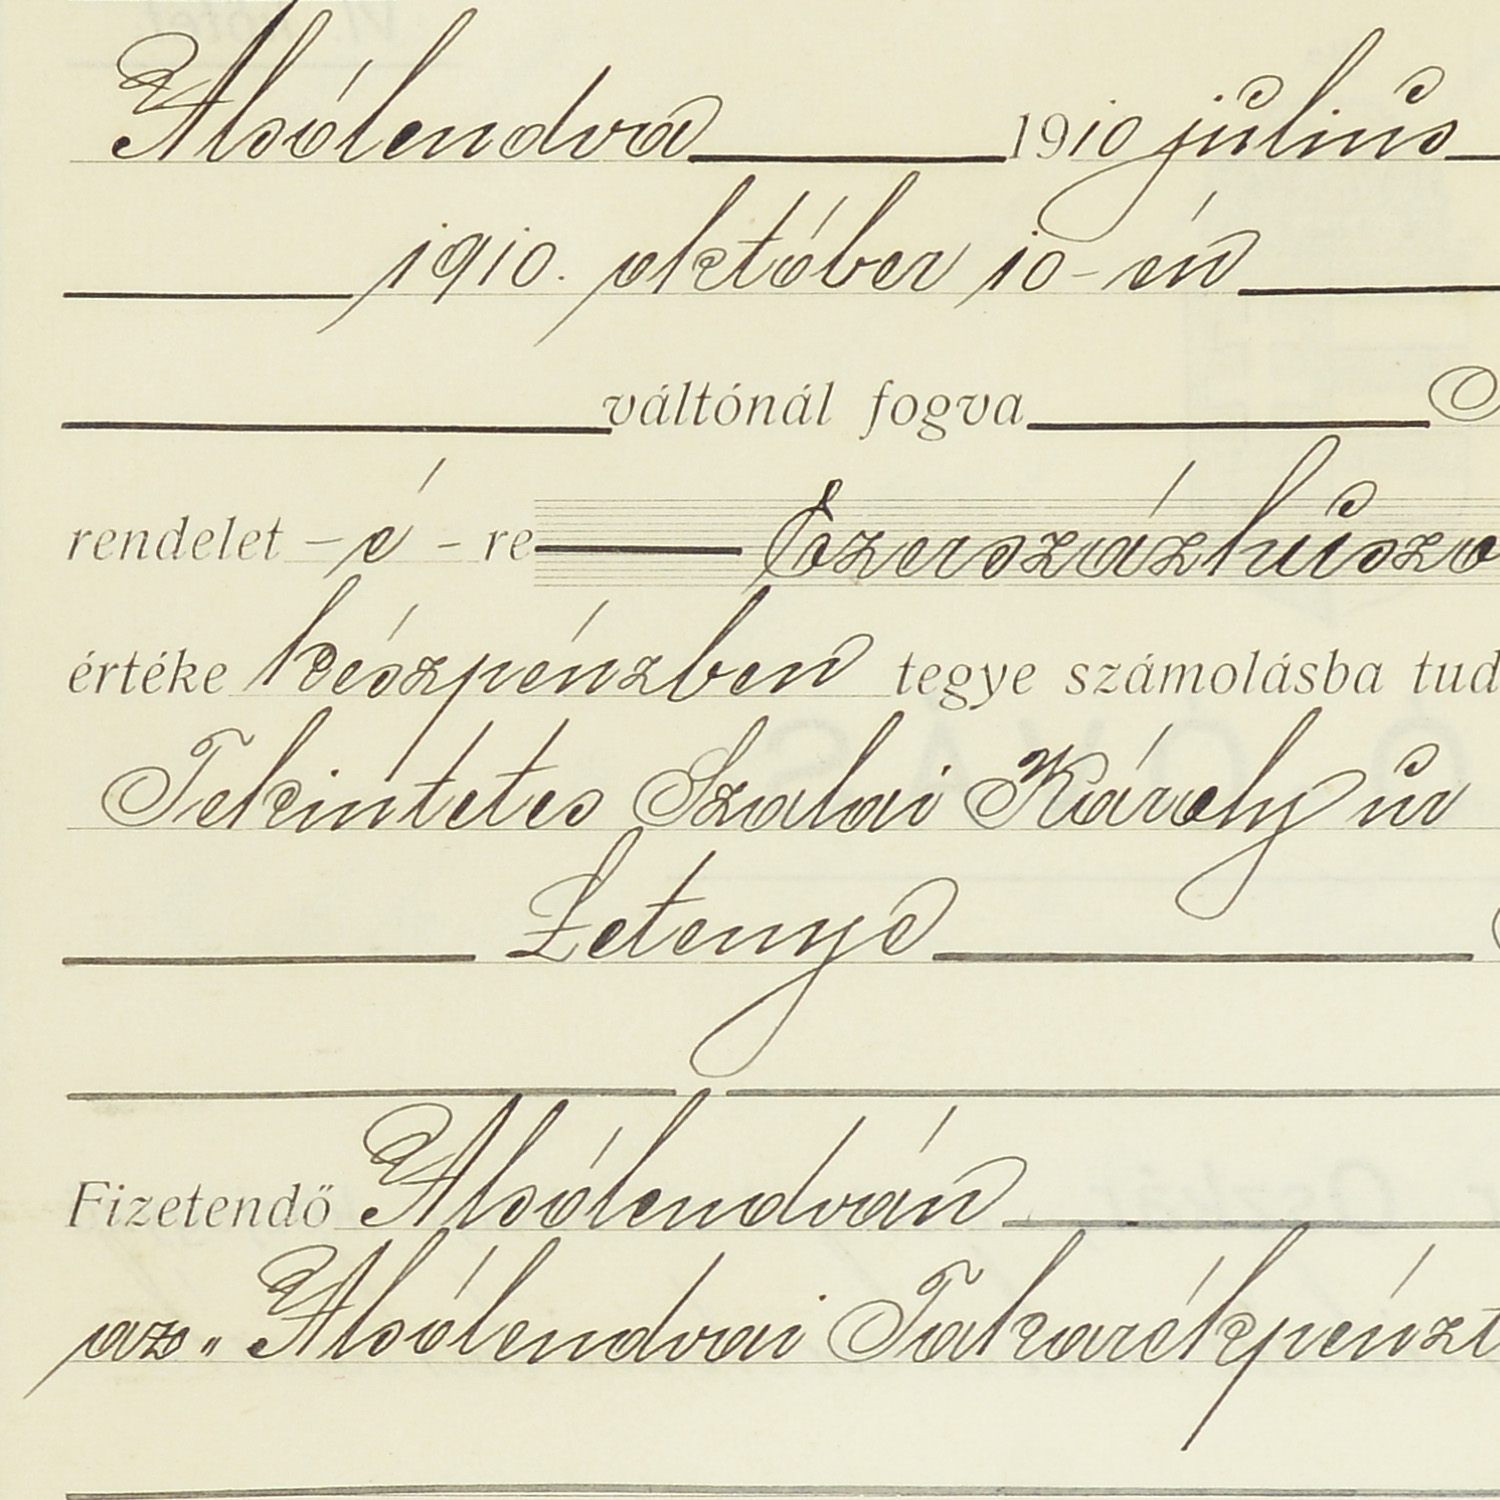 Alsólendva 1910 július
1910. október 10-én
váltónál fogva
rendelet - é - re Ezerszázhúszo
értéke készpénzben tegye számolásba tud
Tekintetes Szalai Károly úr
Letenye
Fizetendő Alsólendván
az „ Alsólendvai Takarékpénzt